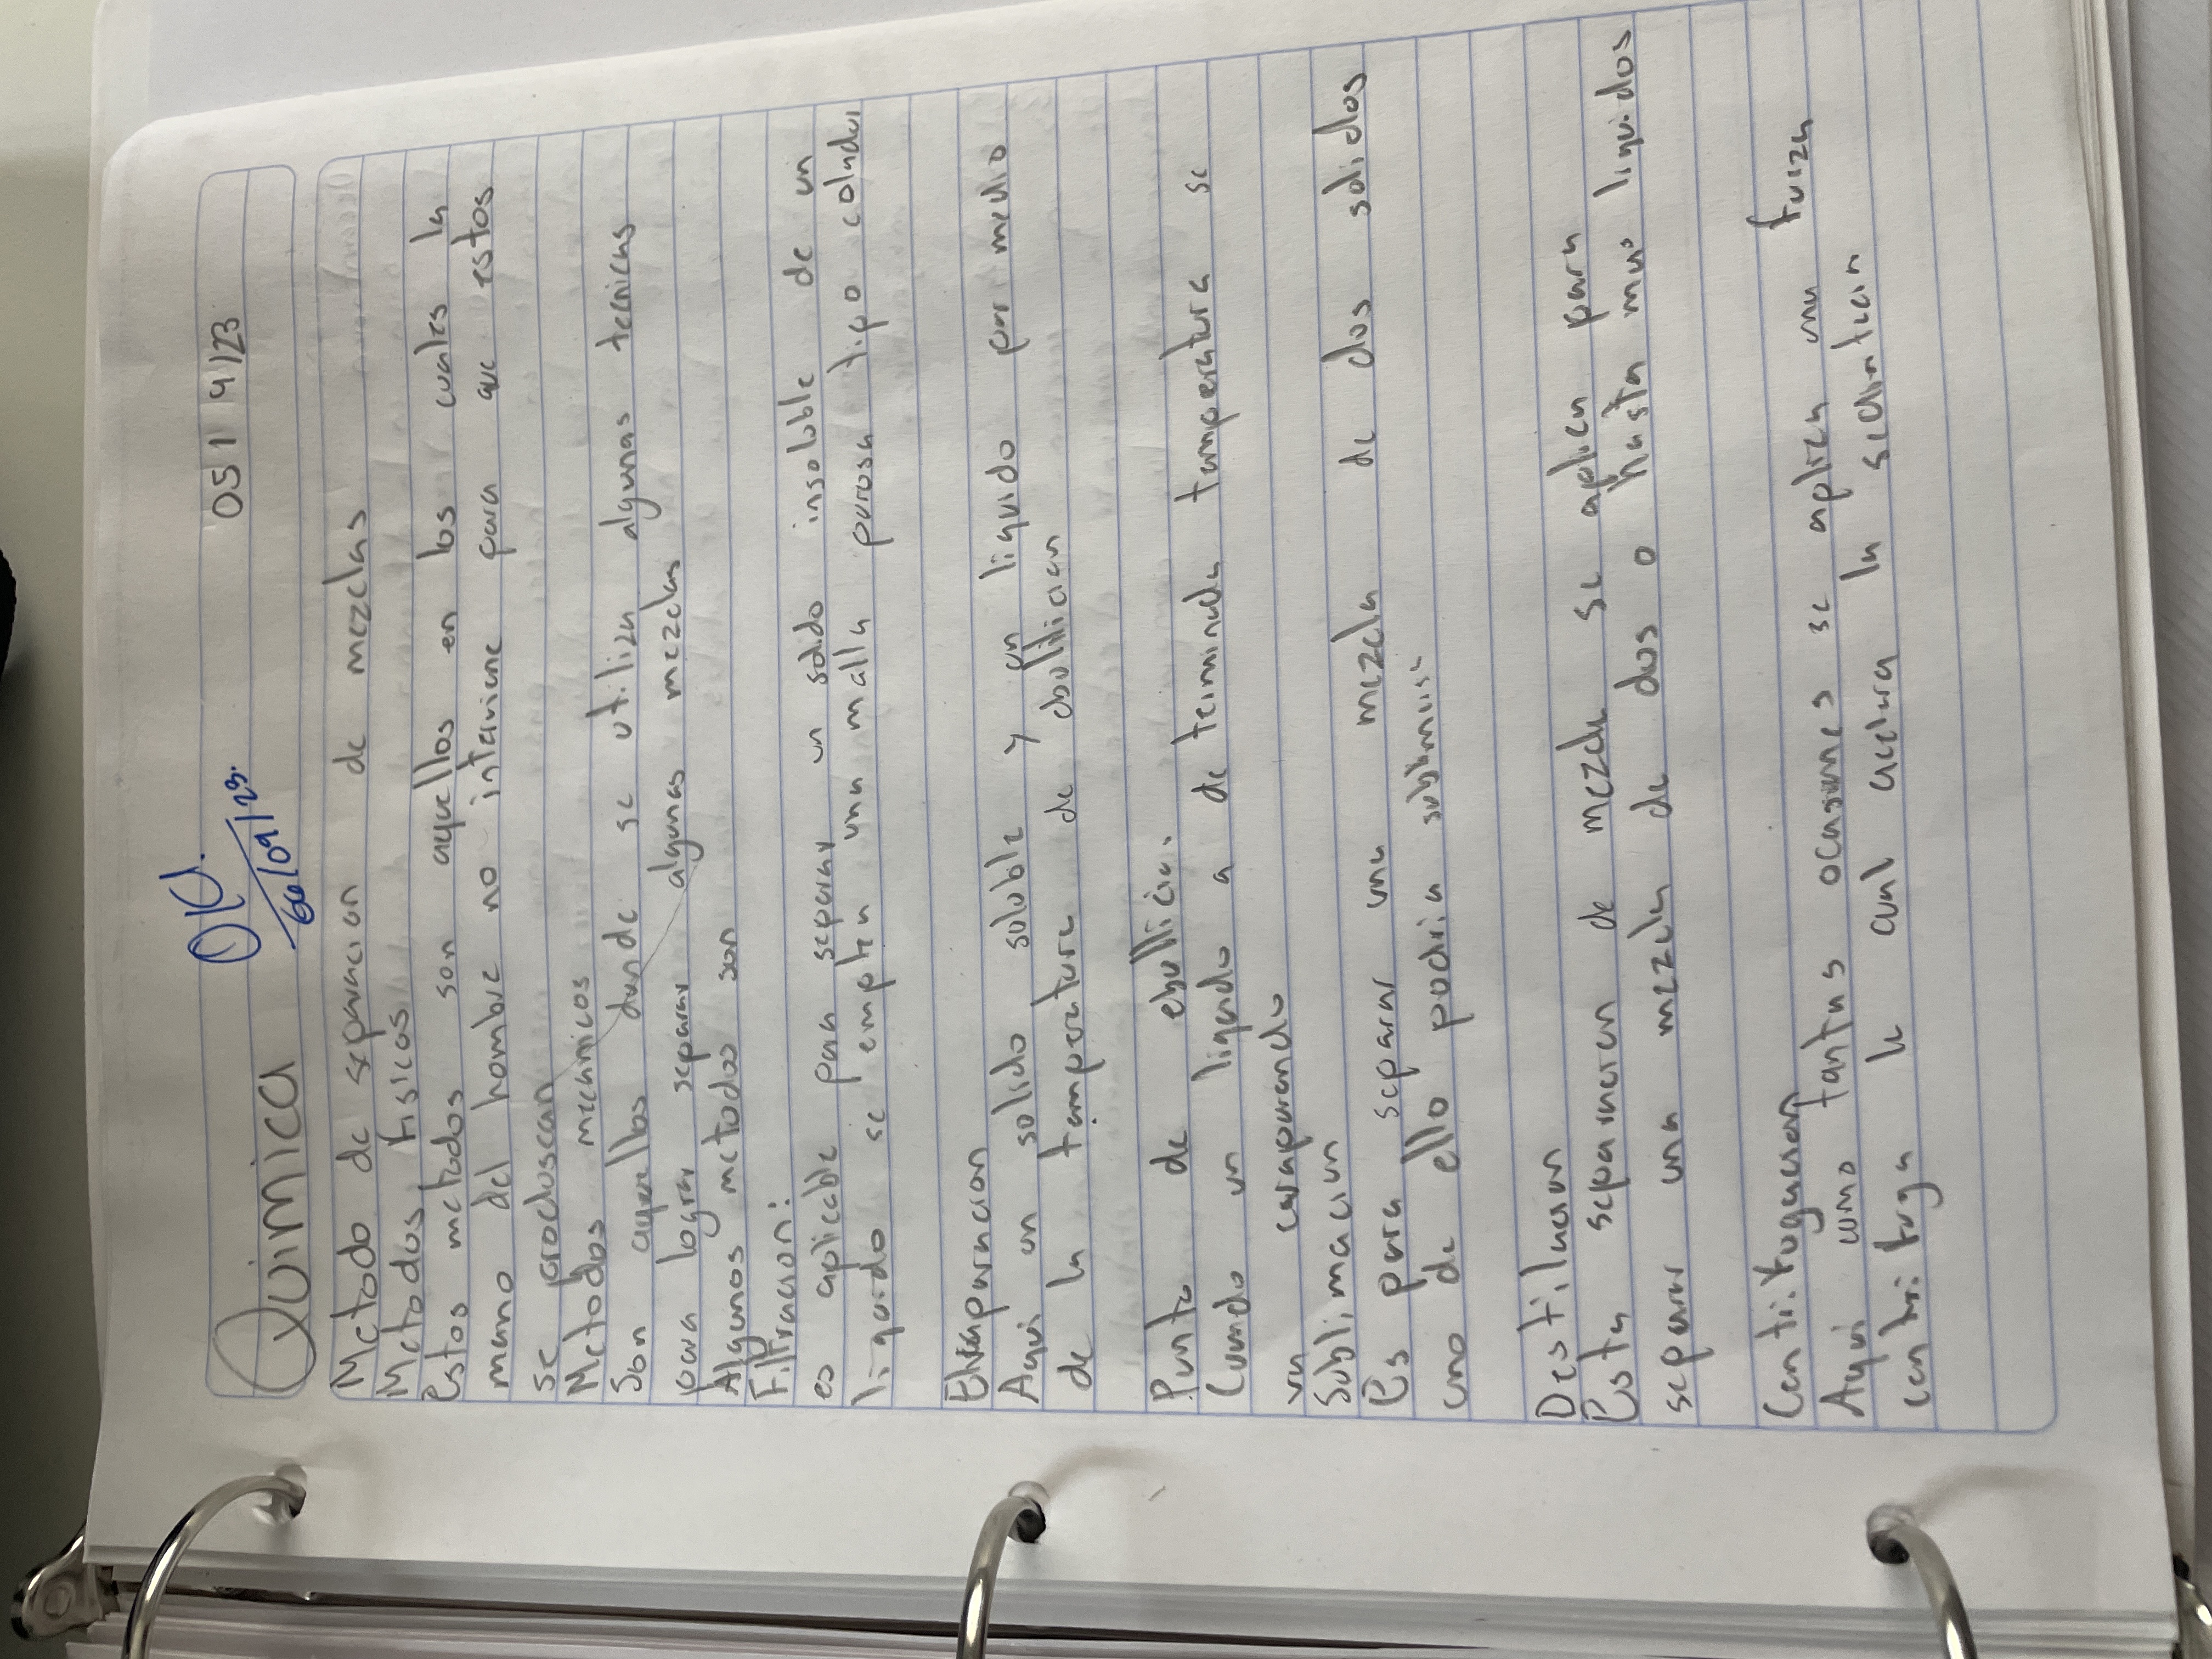 Quimica OK. 05/9/23
06/09/23.
Metodo de separacion de mezclas
Metodos fisicos
Estos metodos son aquellos en los cuales la
mano del hombre no interviene para que estos
se produscan
Metodos mecanicos
Son aquellos donde se utiliza algunas tecnicas
para lograr separar algunas mezclas
Algunos metodos son
Filtracion:
es aplicable para separar un solido insoluble de un
liquido se emplea una malla porosa tipo colador
Evaporacion
Aqui un solido soluble y un liquido por medio
de la temperatura de ebullician
Punto de ebullicion.
Cuando un liquido a de terminada temperatura se
va evaporando
Sublimacion
Es para separar una mezcla de dos solidos
uno de ello podria
Destilacion
Esta separacion de mezcla se aplica para
separar una mezcla de dos o hasta mas liquidos
Centrifugacion
Aqui como tantas ocasiones se aplica una fuerza
centrifuga la cual acelera la